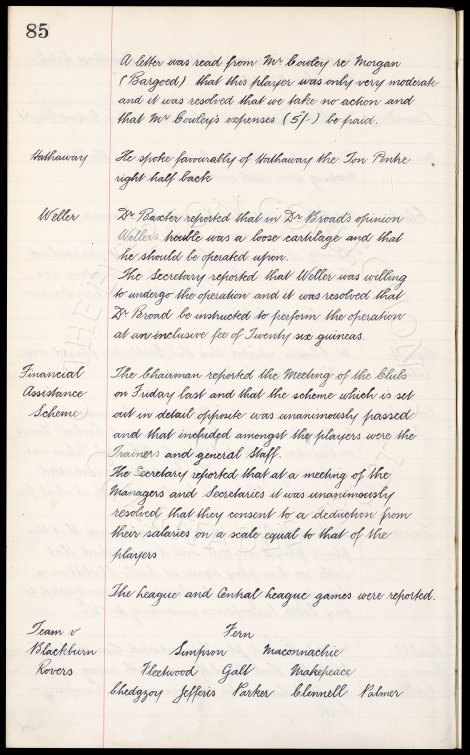 85
A letter was read from Mr Cowley re Morgan
(Bargoed) that this player was only very moderate
and it was resolved that we take no action and
that Mr Cowley's expenses (5/-) be paid.
Hathaway
He spoke favourably of Hathaway the Ton Pentre
right half back
Weller
Dr Baxter reported that in Dr Broad's opinion
Wellers trouble was a loose cartilage and that
he should be operated upon.
The Secretary reported that Weller was willing
to undergo the operation and it was resolved that
Dr Broad be instructed to perform the operation
at an inclusive fee of Twenty six guineas.
Financial
Assistance
Scheme
The Chairman reported the Meeting of the Clubs
on Friday last and that the scheme which is set
out in detail opposite was unanimously passed
and that included amongst the players were the
Trainers and general Staff.
The Secretary reported that at a meeting of the
Managers and Secretaries it was unanimously
resolved that they consent to a deduction from
their salaries on a scale equal to that of the
players
The League and Central League games were reported.
Team v
Blackburn
Rovers
Fern
Simpson Maconnachie
Fleetwood Galt Makepeace
Chedgzoy Jefferis Parker Clennell Palmer